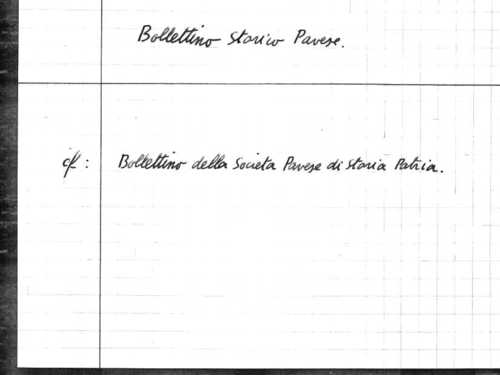 Bollettino Storico Pavese.
cf : Bollettino della Societa Pavese di Storia Patria.